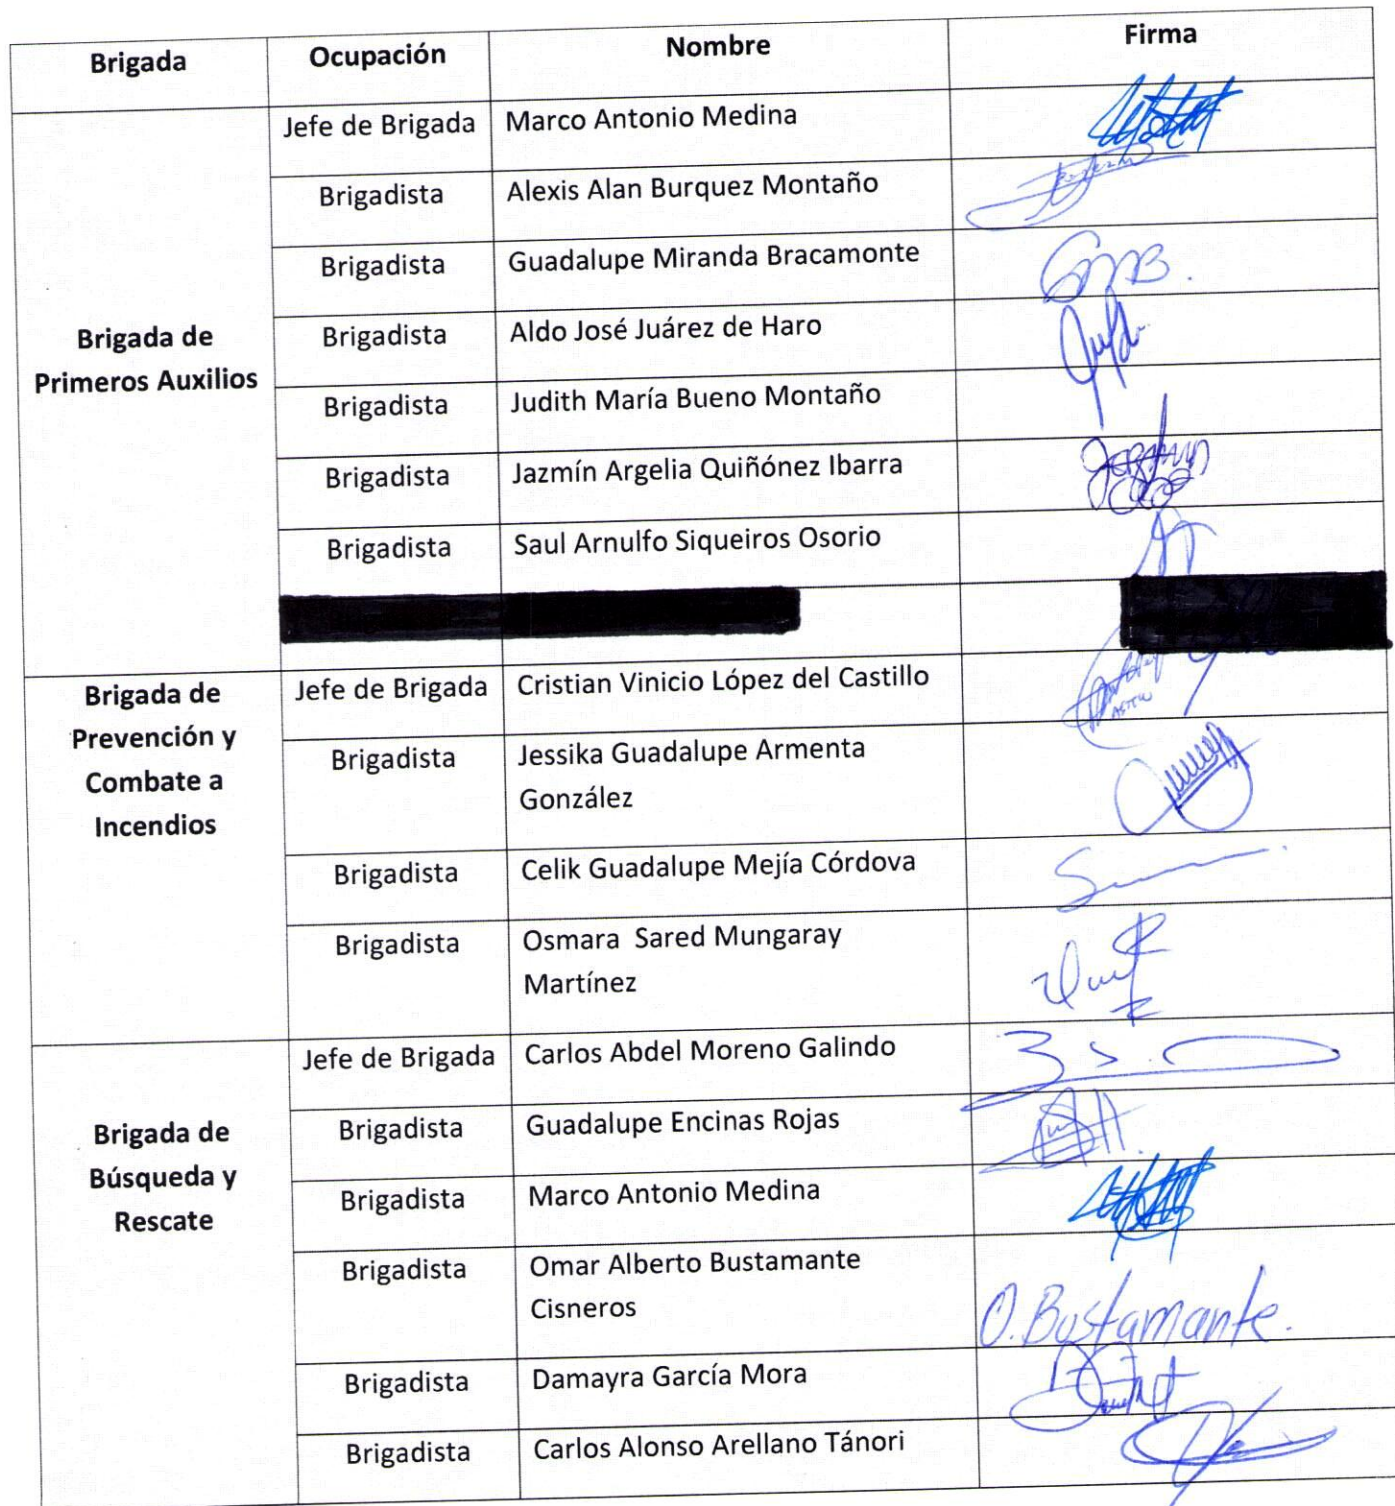 Brigada Ocupación Nombre Firma
Jefe de Brigada Marco Antonio Medina
Brigadista Alexis Alan Burquez Montaño
Brigadista Guadalupe Miranda Bracamonte GMB.
Brigada de
Primeros Auxilios
Brigadista Aldo José Juárez de Haro
Brigadista Judith María Bueno Montaño
Brigadista Jazmín Argelia Quiñónez Ibarra
Brigadista Saul Arnulfo Siqueiros Osorio
Brigada de
Prevención y
Combate a
Incendios
Jefe de Brigada Cristian Vinicio López del Castillo
Brigadista Jessika Guadalupe Armenta
González
Brigadista Celik Guadalupe Mejía Córdova
Brigadista Osmara Sared Mungaray
Martínez
Brigada de
Búsqueda y
Rescate
Jefe de Brigada Carlos Abdel Moreno Galindo
Brigadista Guadalupe Encinas Rojas
Brigadista Marco Antonio Medina
Brigadista Omar Alberto Bustamante
Cisneros
O. Bustamante.
Brigadista Damayra García Mora
Brigadista Carlos Alonso Arellano Tánori